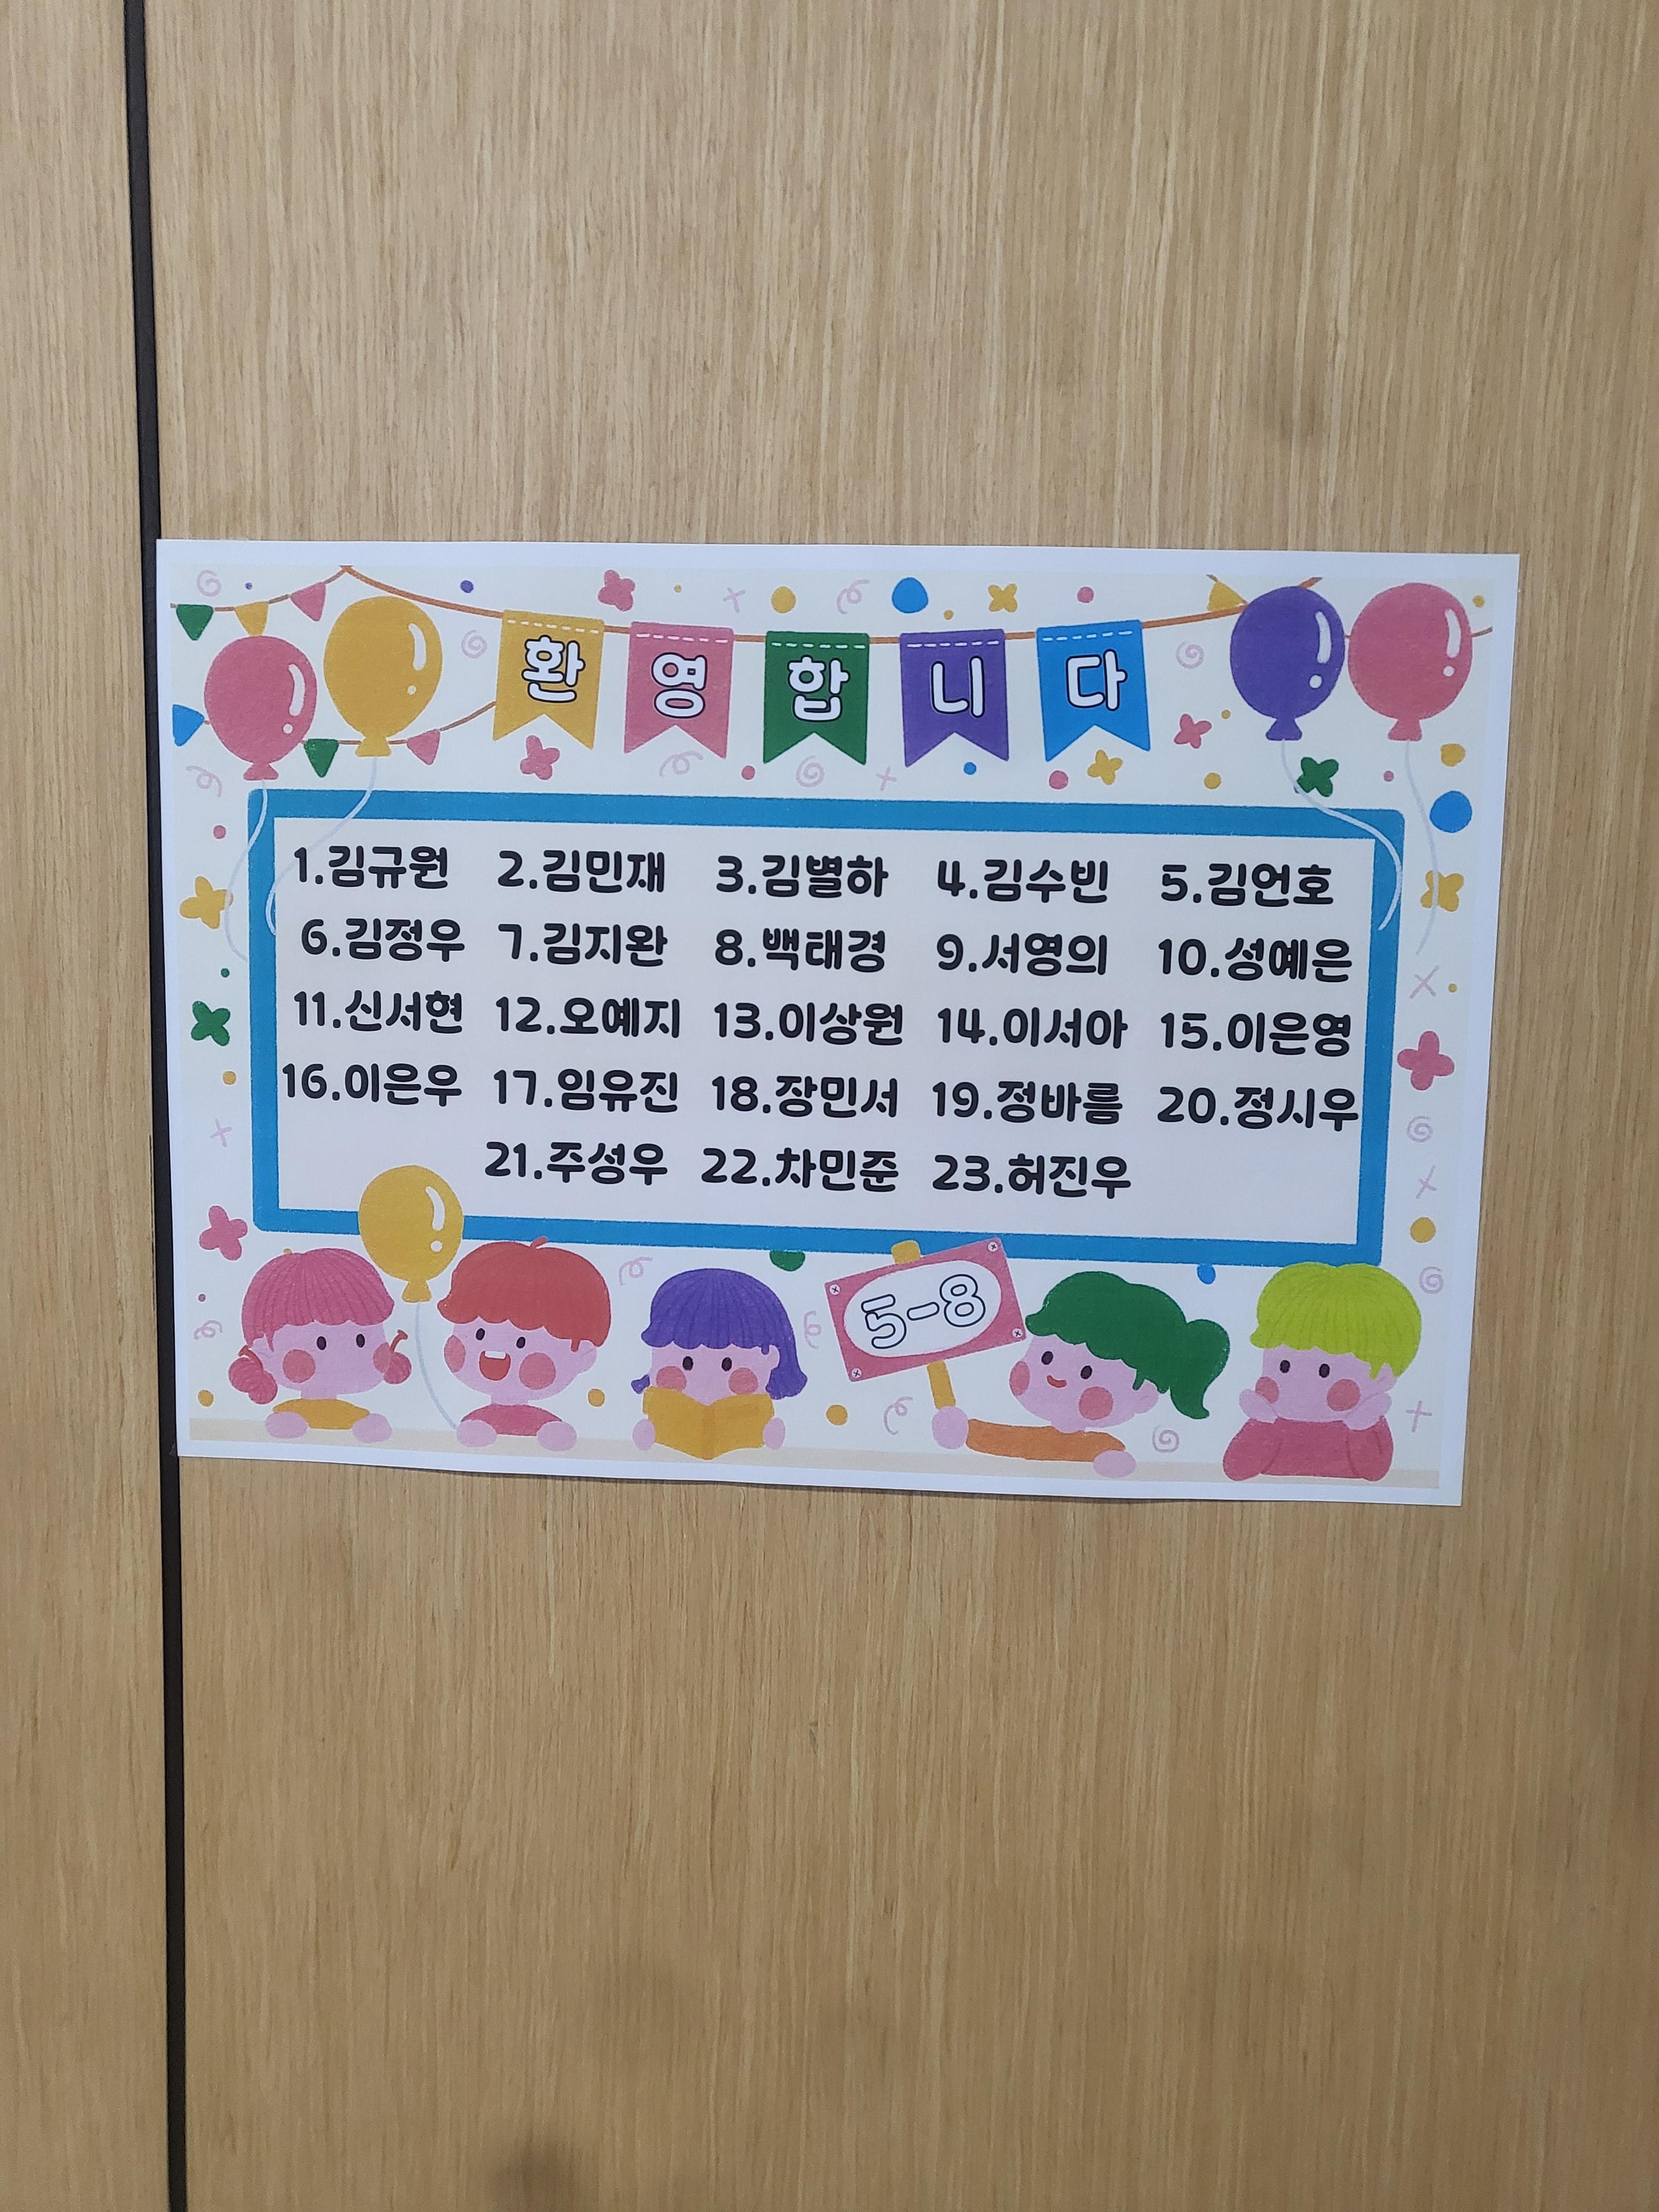 환영합니다
1.김규원 2.김민재 3.김별하 4.김수빈 5.김언호
6.김정우 7.김지완 8.백태경 9.서영의 10.성예은
11.신서현 12.오예지 13.이상원 14.이서아 15.이은영
16.이은우 17.임유진 18.장민서 19.정바름 20.정시우
21.주성우 22.차민준 23.허진우
5-8